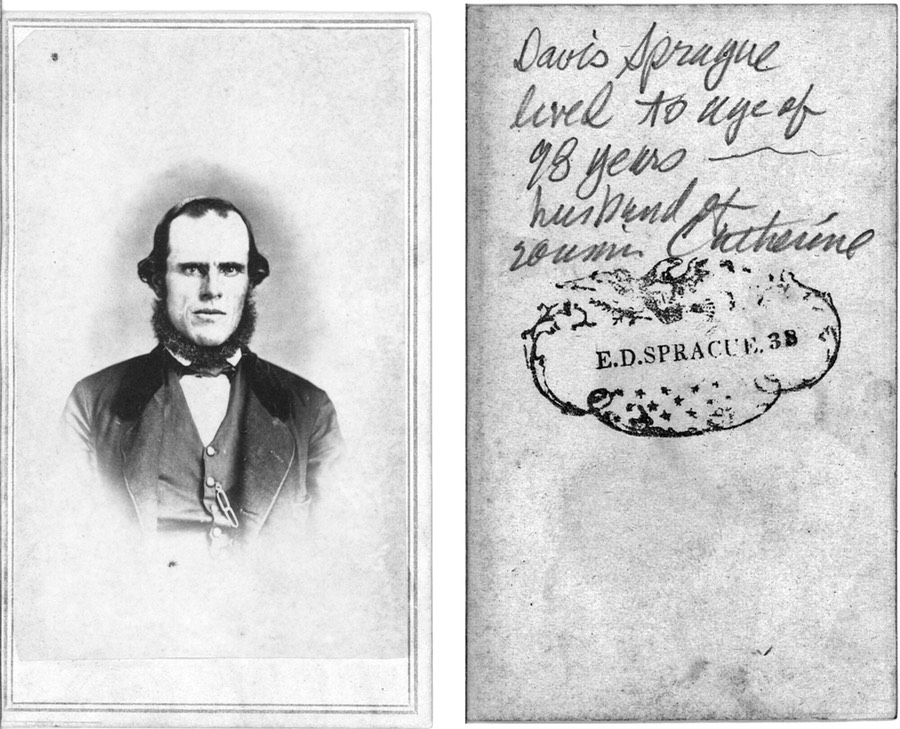 Davis Sprague
lived to age of
98 years
husband of
cousin Catherine
E.D.SPRAGUE. 38